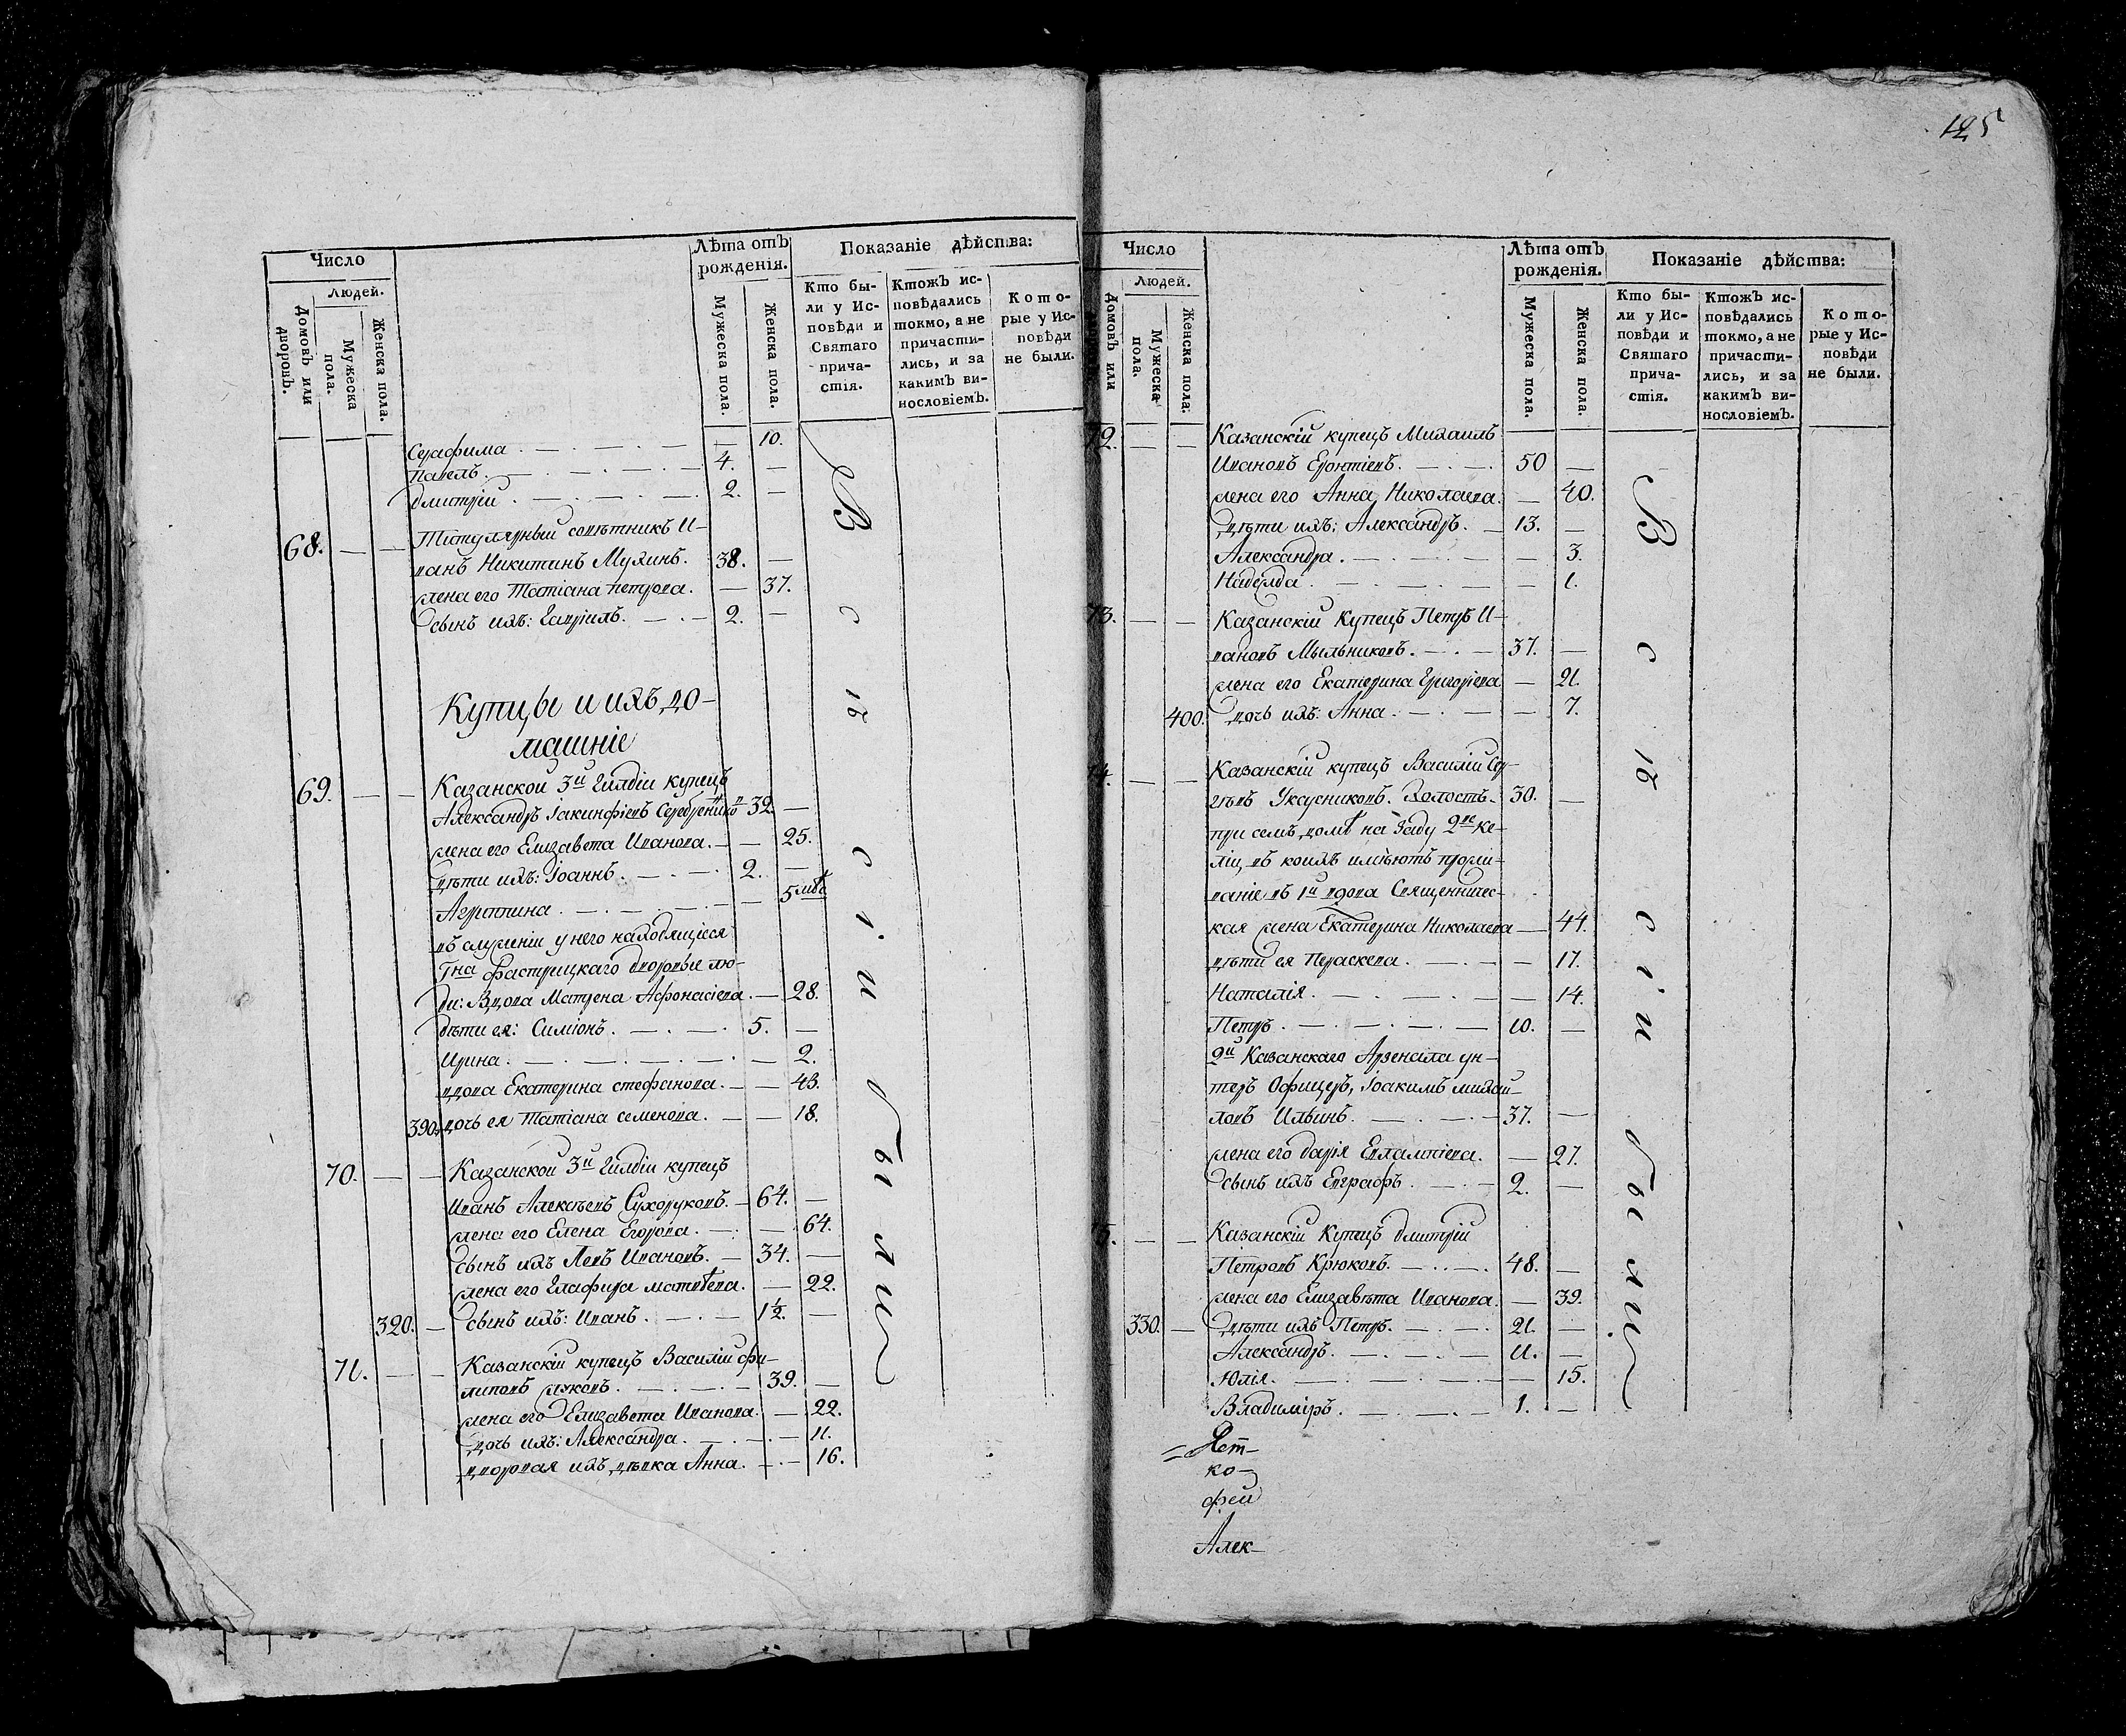 Число
Людей.
Домовъ или дворовъ.
Мужеска пола.
Женска пола.
Лѣта отъ рожденія.
Мужеска пола.
Женска пола.
Показаніе дѣйства:
Кто были у Исповѣди и Святаго причастія.
Ктожъ исповѣдались токмо, а не причастились, и за какимъ винословіемъ.
Которые у Исповѣди не были.
Серафима 10.
Павелъ 4.
Дмитрій 2.
68. Титулярный совѣтникъ И-
ванъ Никитинъ Мухинъ. 38.
жена его Татіана Петрова. 37.
сынъ ихъ: Гавріилъ. 2.
Купцы и ихъ до-
машніе
69. Казанской 3й Гилдіи купецъ
Александръ Іакинфіевъ Серебрениковъ 32.
жена его Елизавета Иванова. 25.
дѣти ихъ: Іоаннъ. 2.
Агриппина 5
въ служеніи у него находящіеся
Гна Фастрицкаго дворовые лю-
ди: Вдова Матрена Афонасіева 28.
дѣти ея: Симіонъ. 5.
Ирина 2.
вдова Екатерина Стефанова. 43.
390. дочь ея Татіана Семенова. 18.
70. Казанской 3й Гилдіи купецъ
Иванъ Алексѣевъ Сухоруковъ. 64.
жена его Елена Егорова. 64.
сынъ ихъ Левъ Ивановъ. 34.
жена его Глафира Матвѣева. 22.
320. сынъ ихъ: Иванъ. 1½.
71. Казанскій купецъ Василій Фи-
липовъ Жуковъ. 39.
жена его Елизавета Иванова. 22.
дочь ихъ: Александра. 11.
дворовая ихъ дѣвка Анна. 16.
Всѣ сіи были
125
Число
Людей.
Домовъ или
Мужеска пола.
Женска пола.
Лѣта отъ рожденія.
Мужеска пола.
Женска пола.
Показаніе дѣйства:
Кто были у Исповѣди и Святаго причастія.
Ктожъ исповѣдались токмо, а не причастились, и за какимъ винословіемъ.
Которые у Исповѣди не были.
72. Казанскій купецъ Михаилъ
Ивановъ Геронтіевъ. 50
жена его Анна Николаева. 40.
дѣти ихъ: Александръ. 13.
Александра 3.
Надежда 1.
73. Казанскій Купецъ Петръ И-
вановъ Мыльниковъ. 37.
жена его Екатерина Григоріева 21.
400. дочь ихъ: Анна. 7.
74. Казанскій купецъ Василій Сер-
гѣевъ Уксусниковъ. Холостъ. 30.
при семъ домѣ на заду 2ве ке-
ліи, въ коихъ имѣютъ прожи-
ваніе въ 1й вдова Священничес-
кая жена Екатерина Николаева 44.
дѣти ея Параскева. 17.
Наталія 14.
Петръ 10.
2й Казанскаго Арзенала ун-
теръ Офицеръ, Іоакимъ Михай-
ловъ Ильинъ. 37.
жена его Дарія Евлампіева. 27.
сынъ ихъ Евграфъ. 2.
75. Казанскій Купецъ Дмитрій
Петровъ Крюковъ. 48.
жена его Елизавѣта Иванова. 39.
330. дѣти ихъ Петръ. 21.
Александръ. 11.
Юлія. 15.
Владиміръ. 1.
Всѣ сіи были
ко-
фей
Алек-